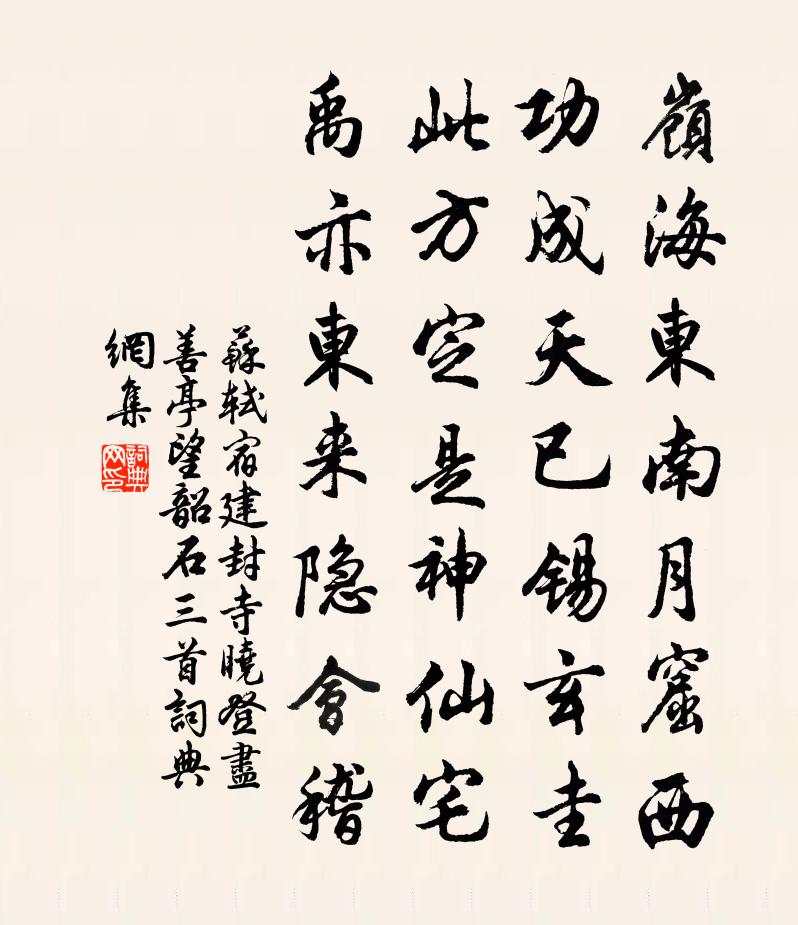 嶺海東南月窟西
功成天已錫玄圭
此方定是神仙宅
禹亦東来隐會稽
蘇軾宿建封寺曉登盡
善亭望韶石三首詞典
網集
詞典网印